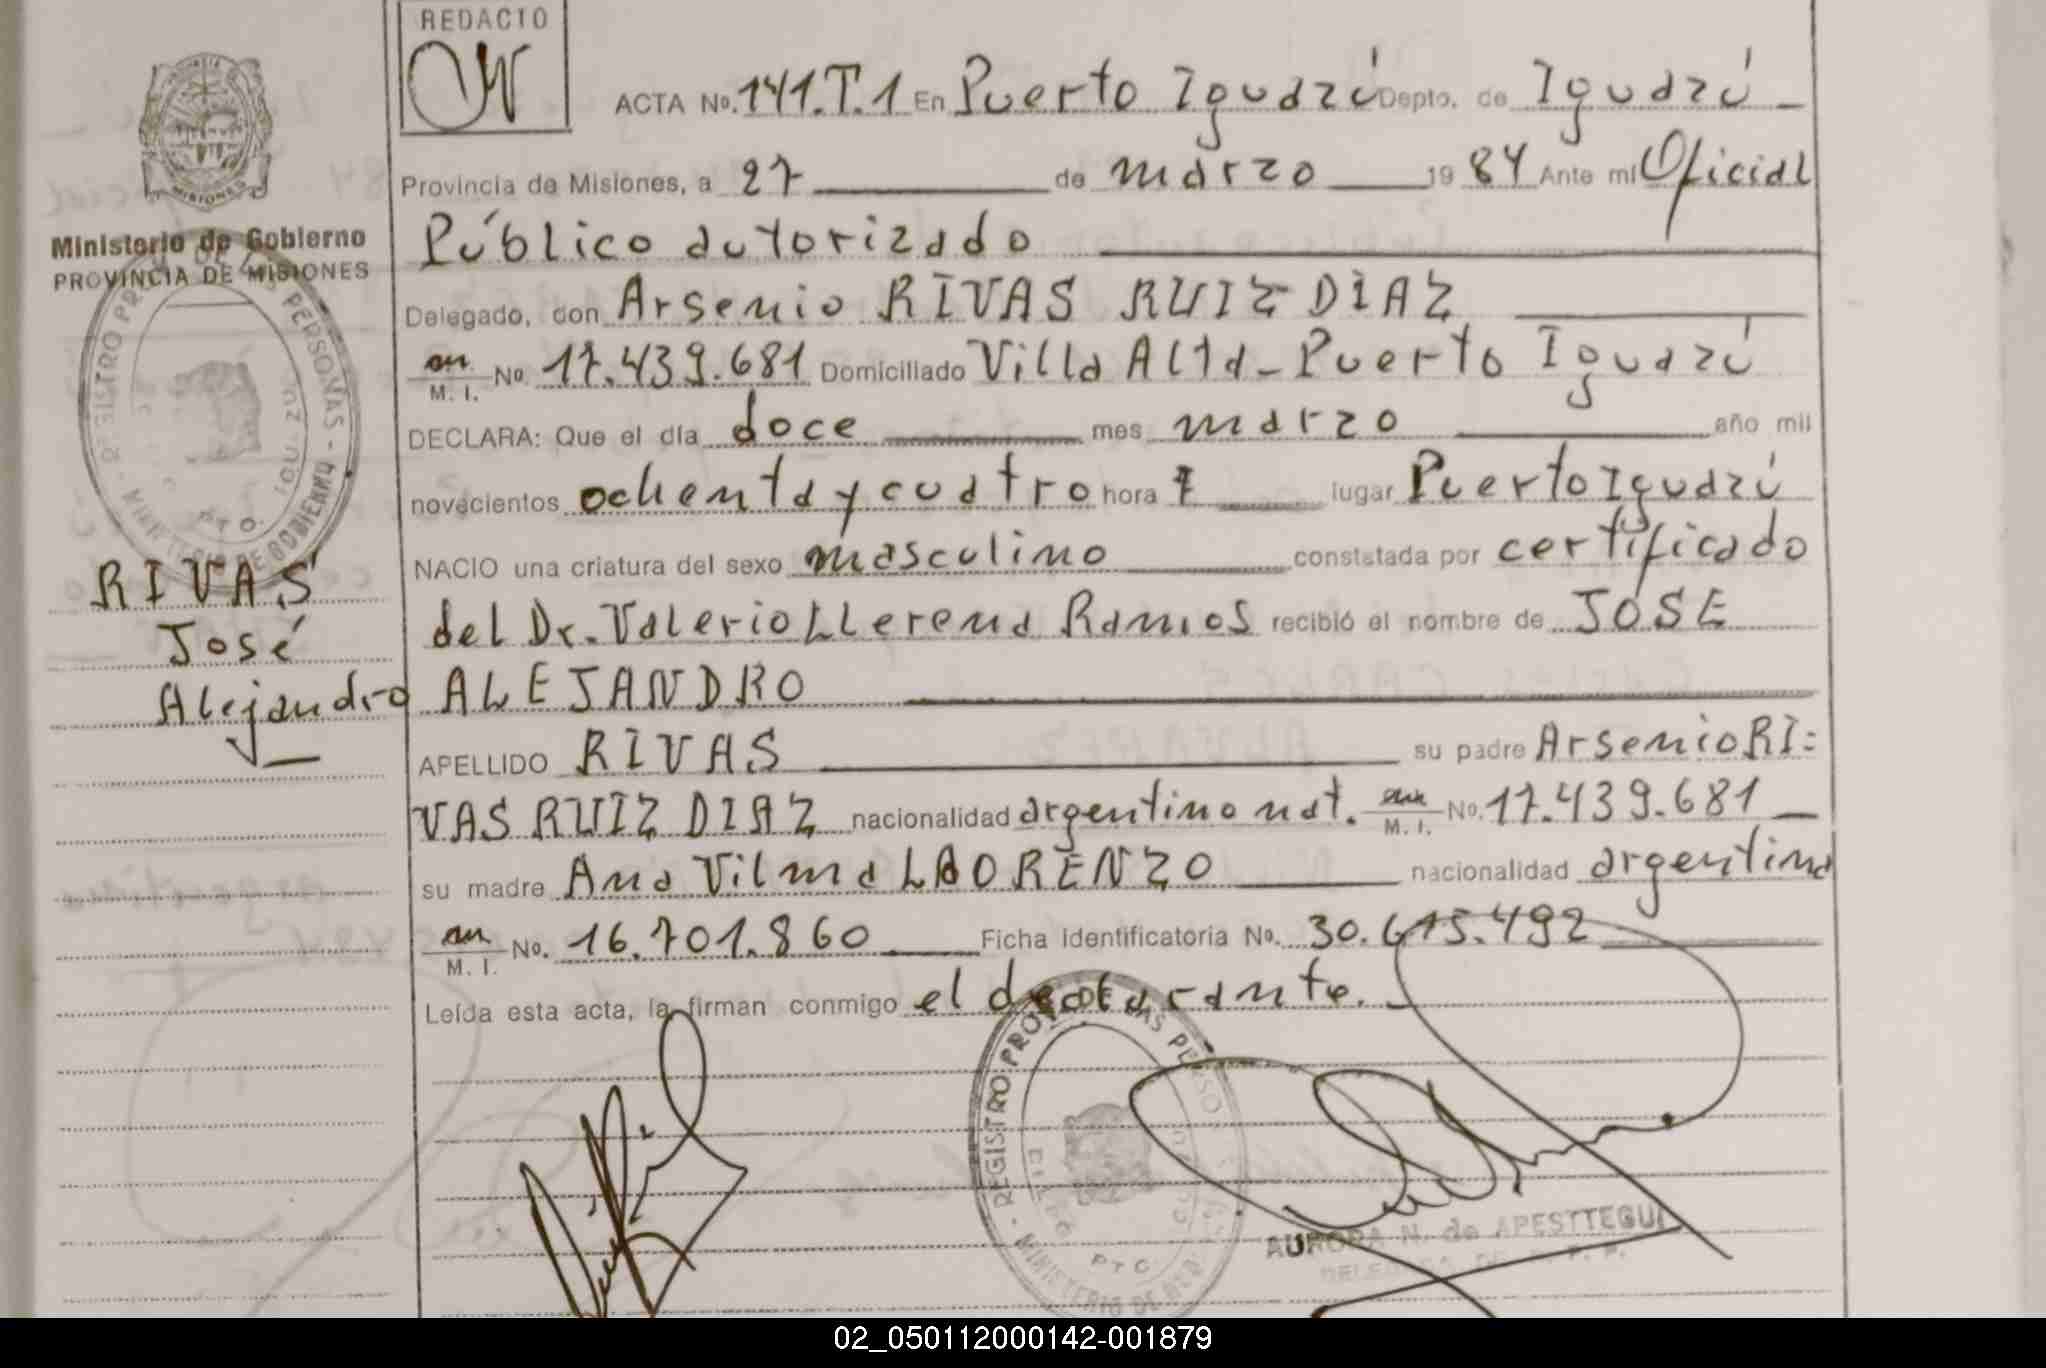 REDACTO
ACTA No. 141.T.1 En Puerto Iguazú Depto. de Iguazú
Provincia de Misiones, a 27 de marzo 1984 Ante mi Oficial
Público autorizado
Delegado, don Arsenio RIVAS RUIZ DIAZ
M. I. No. 17.439.681 Domiciliado Villa Alta - Puerto Iguazú
DECLARA: Que el día doce mes marzo año mil
novecientos ochenta y cuatro hora 7 lugar Puerto Iguazú
NACIO una criatura del sexo masculino conststada por certificado
del Dr. Valerio LLerena Ramos recibió el nombre de JOSE
ALEJANDRO
APELLIDO RIVAS su padre Arsenio RI=
VAS RUIZ DIAZ nacionalidad argentino nat. M. I. No. 17.439.681
su madre Ana Vilma LDORENZO nacionalidad argentina
M. I. No. 16.701.860 Ficha identificatoria No. 30.615.492
Leída esta acta, la firman conmigo el declarante.
MISIONES
Ministerio de Gobierno
PROVINCIA DE MISIONES
RIVAS
José
Alejandro
REGISTRO PERSONAS - MINISTERIO DE GOBIERNO
PTO.
REGISTRO PRO LAS PERSO
MINISTERIO DE
PTO
AURORA N. de APESTTEGUI
02_050112000142-001879